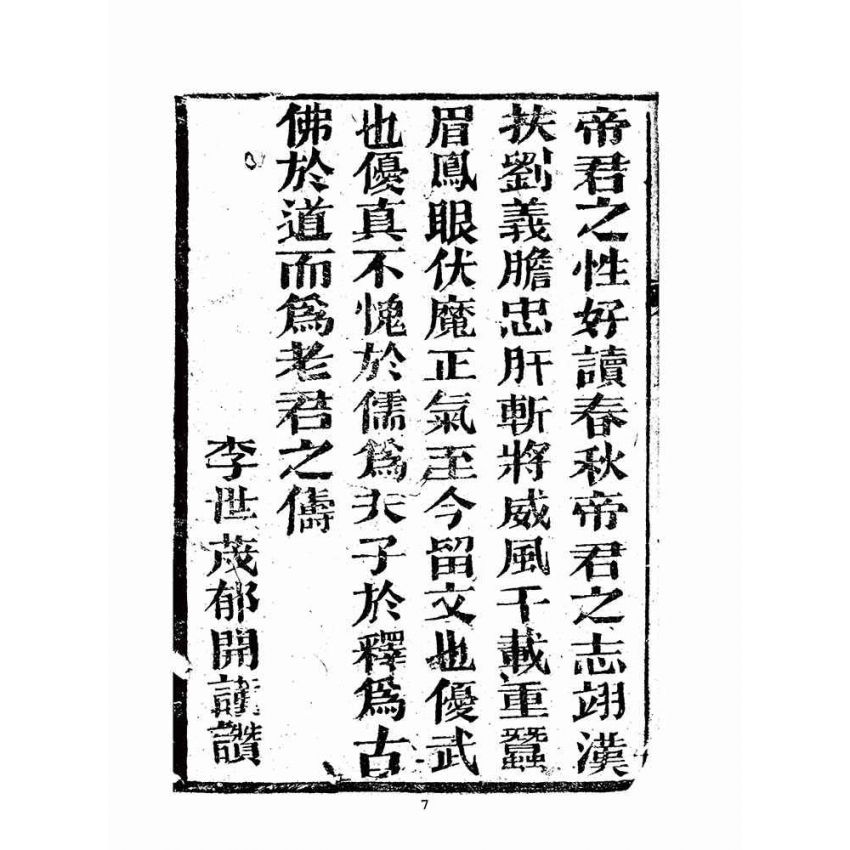 帝君之性好讀春秋帝君之志翊漢
扶劉義膽忠肝斬將威風千載重蠶
眉鳳眼伏魔正氣至今留文也優武
也優真不愧於儒爲夫子於釋爲古
佛於道而爲老君之儔
李世茂郁開謹讚
7